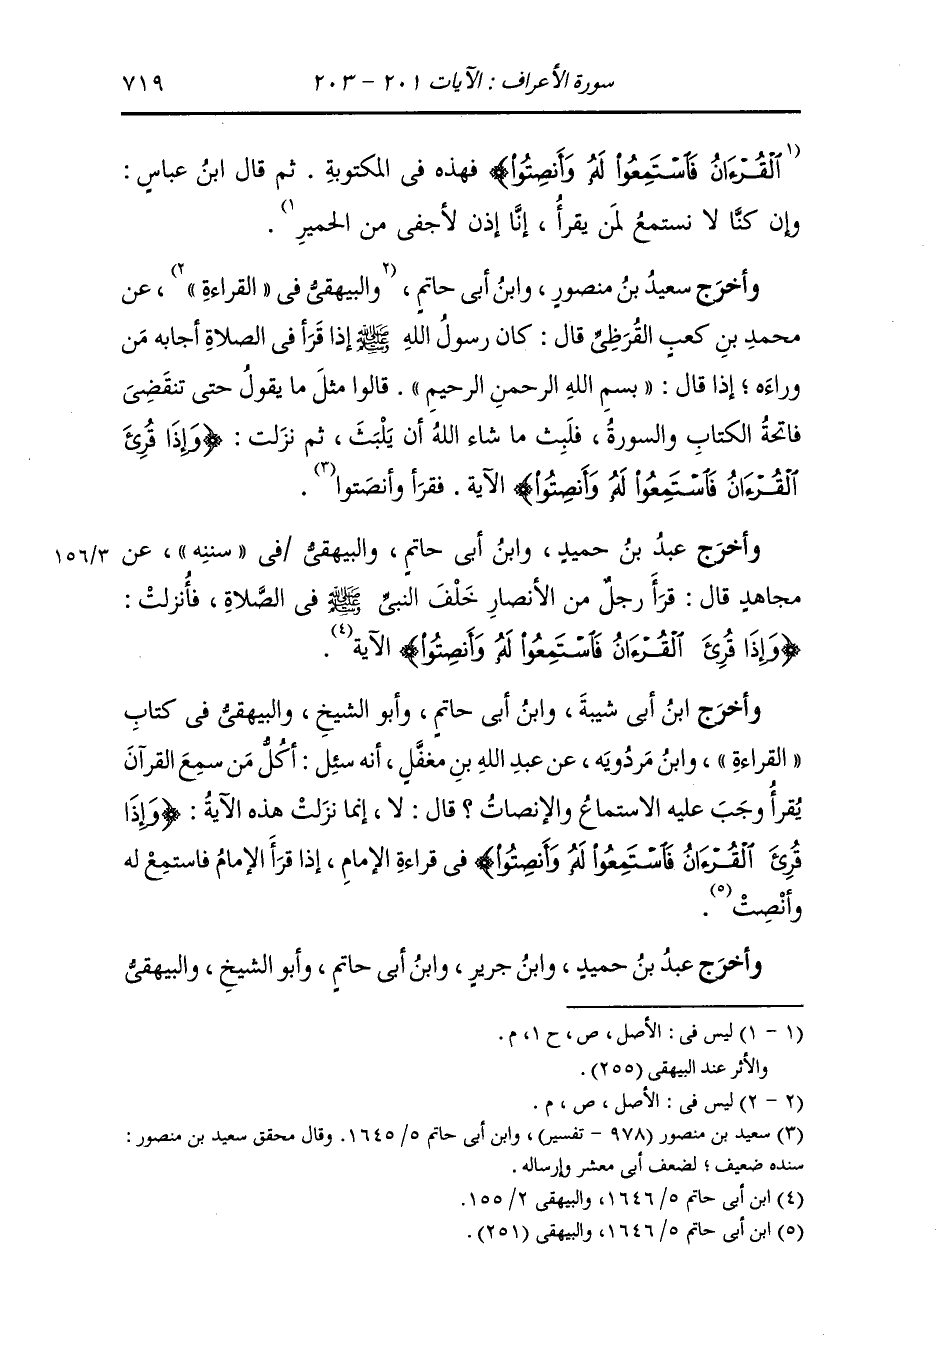 سورة الأعراف : الآيات ٢٠١ - ٢٠٣ ٧١٩
(١ ٱلۡقُرۡءَانُ فَٱسۡتَمِعُواْ لَهُۥ وَأَنصِتُواْ﴾ فهذه فى المكتوبةِ . ثم قال ابنُ عباسٍ :
وإن كنَّا لا نستمعُ لمَن يقرأُ ، إنَّا إذن لأجفى من الحميرِ ١) .
وأخرَج سعيدُ بنُ منصورٍ ، وابنُ أبى حاتمٍ ، (٢ والبيهقىُّ فى « القراءةِ » ٢) ، عن
محمدِ بنِ كعبٍ القُرَظِىِّ قال : كان رسولُ اللهِ ﷺ إذا قَرَأ فى الصلاةِ أجابه مَن
وراءَه ؛ إذا قال : « بسمِ اللهِ الرحمنِ الرحيمِ » . قالوا مثلَ ما يقولُ حتى تنقَضِىَ
فاتحةُ الكتابِ والسورةُ ، فلَبِث ما شاء اللهُ أن يَلْبَثَ ، ثم نزَلت : ﴿وَإِذَا قُرِئَ
ٱلۡقُرۡءَانُ فَٱسۡتَمِعُواْ لَهُۥ وَأَنصِتُواْ﴾ الآية . فقرَأ وأنصَتوا (٣) .
وأخرَج عبدُ بنُ حميدٍ ، وابنُ أبى حاتمٍ ، والبيهقىُّ /فى « سننِه » ، عن ١٥٦/٣
مجاهدٍ قال : قرَأ رجلٌ من الأنصارِ خَلْفَ النبىِّ ﷺ فى الصَّلاةِ ، فأُنزلتْ :
﴿وَإِذَا قُرِئَ ٱلۡقُرۡءَانُ فَٱسۡتَمِعُواْ لَهُۥ وَأَنصِتُواْ﴾ الآية (٤) .
وأخرَج ابنُ أبى شيبةَ ، وابنُ أبى حاتمٍ ، وأبو الشيخِ ، والبيهقىُّ فى كتابِ
« القراءةِ » ، وابنُ مَردُويَه ، عن عبدِ اللهِ بنِ مغفَّلٍ ، أنه سئِل : أكُلُّ مَن سمِعَ القرآنَ
يُقرأُ وجَبَ عليه الاستماعُ والإنصاتُ ؟ قال : لا ، إنما نزَلتْ هذه الآيةُ : ﴿وَإِذَا
قُرِئَ ٱلۡقُرۡءَانُ فَٱسۡتَمِعُواْ لَهُۥ وَأَنصِتُواْ﴾ فى قراءةِ الإمامِ ، إذا قرَأ الإمامُ فاستمِعْ له
وأنْصِتْ (٥) .
وأخرَج عبدُ بنُ حميدٍ ، وابنُ جريرٍ ، وابنُ أبى حاتمٍ ، وأبو الشيخِ ، والبيهقىُّ
(١ - ١) ليس فى : الأصل ، ص ، ح ١ ، م .
والأثر عند البيهقى (٢٥٥) .
(٢ - ٢) ليس فى : الأصل ، ص ، م .
(٣) سعيد بن منصور (٩٧٨ - تفسير) ، وابن أبى حاتم ٥/ ١٦٤٥. وقال محقق سعيد بن منصور :
سنده ضعيف ؛ لضعف أبى معشر وإرساله .
(٤) ابن أبى حاتم ٥/ ١٦٤٦، والبيهقى ٢/ ١٥٥.
(٥) ابن أبى حاتم ٥/ ١٦٤٦، والبيهقى (٢٥١) .